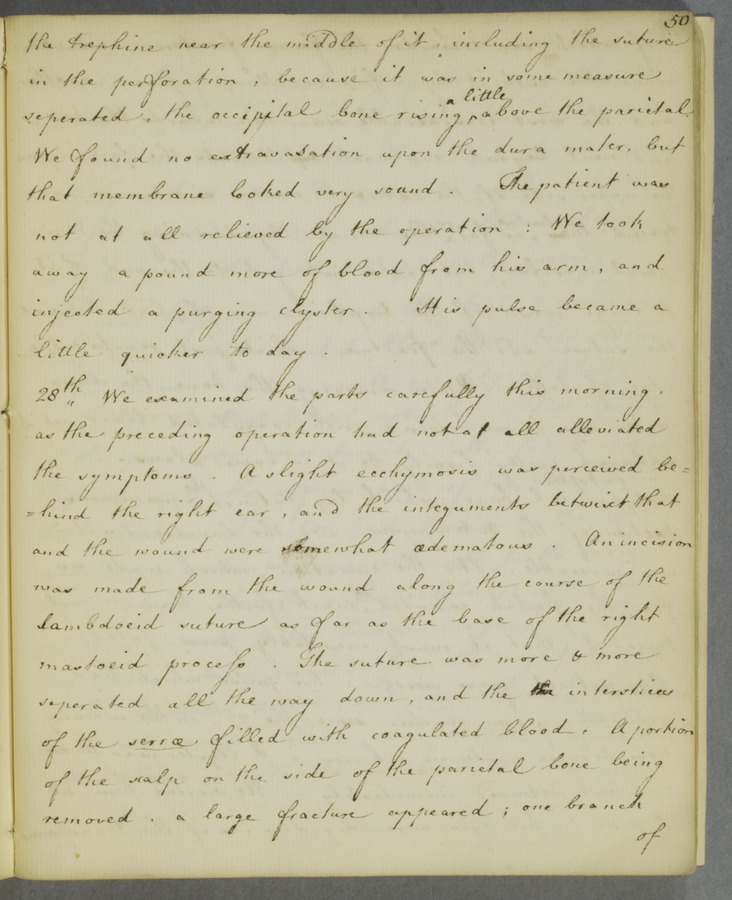 50
the trephine near the middle of it, including the suture
in the perforation, because it was in some measure
a little
seperated, the occipital bone rising ‸ above the parietal.
We found no extravasation upon the dura mater, but
that membrane looked very sound. The patient was
not at all relieved by the operation : We took
away a pound more of blood from his arm, and
injected a purging clyster. His pulse became a
little quicker to day.
28th We examined the parts carefully this morning.
as the preceding operation had not at all alleviated
the symptoms. A slight ecchymosis was perceived be=
=hind the right ear, and the integuments betwixt that
and the wound were somewhat œdematous. An incision
was made from the wound along the course of the
lambdoeid suture as far as the base of the right
mastoeid process. The suture was more & more
seperated all the way down, and the the interstices
of the serræ filled with coagulated blood. A portion
of the scalp on the side of the parietal bone being
removed. a large fracture appeared; one branch
of